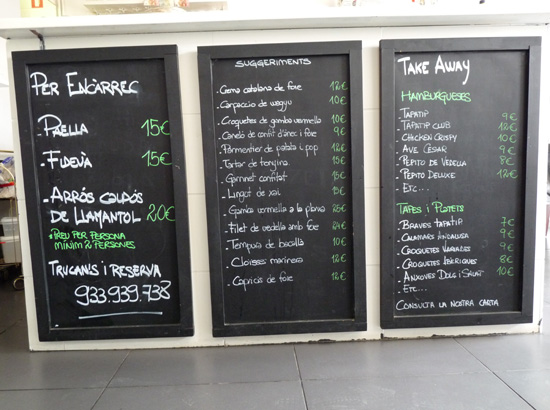 PER ENCÀRREC
- PAELLA 15€
- FIDEVÀ 15€
- ARRÓS CALDÓS
DE LLAMANTOL 20€
* PREU PER PERSONA
MÍNIM 2 PERSONES
TRUCA'NS I RESERVA
933.939.738
SUGGERIMENTS
- Crema catalana de foie 12€
- Carpaccio de wagyu 10€
- Croquetes de gamba vermella 10€
- Caneló de confit d'ànec i foie 9€
- Parmentier de patata i pop 12€
- Tartar de tonyina 15€
- Garrinet confitat 15€
- Lingot de xai 15€
- Gamba vermella a la planxa 25€
- Filet de vedella amb foie 24€
- Tempura de bacallà 10€
- Cloïsses marinera 12€
- Capricis de foie 12€
TAKE AWAY
HAMBURGUESES
- TAPATIP 9€
- TAPATIP CLUB 12€
- CHICKEN CRISPY 10€
- AVE CÉSAR 9€
- PEPITO DE VEDELLA 8€
- PEPITO DELUXE 12€
- ETC...
TAPES I PLATETS
- BRAVES TAPATIP 7€
- CALAMARS ANDALUSA 9€
- CROQUETES VARIADES 9€
- CROQUETES IBÈRIQUES 8€
- ANXOVES DOLÇ I SALAT 10€
- ETC...
CONSULTA LA NOSTRA CARTA